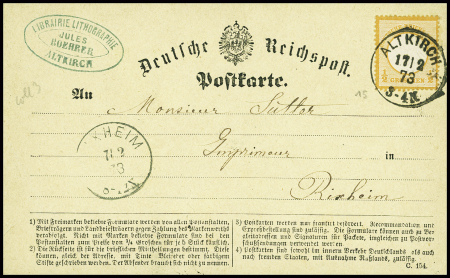 LIBRAIRIE LITHOGRAPHIE
JULES
BOEHRER
ALTKIRCH
Deutsche Reichspost.
Postkarte.
ALTKIRCH
17/2
73
3-4N
An
Monsieur Sutter
Imprimeur
in
Rixheim
XHEIM
17/2
73
1) Mit Freimarken beklebte Formulare werden von allen Postanstalten, Briefträgern und Landbriefträgern gegen Zahlung des Markenwerths verabfolgt. Nicht mit Marken beklebte Formulare sind von den Postanstalten zum Preise von ¼ Groschen für je 5 Stück käuflich.
2) Die Rückseite ist für die brieflichen Mittheilungen bestimmt. Diese können, gleich der Adresse, mit Tinte, Bleistift oder farbigem Stifte geschrieben werden. Der Absender braucht sich nicht zu nennen.
3) Postkarten werden nur frankirt befördert. Recommandation und Expreßbestellung sind zulässig. Die Formulare können auch zu
4) Postkarten sind sowohl im innern Verkehr Deutschlands als auch nach fremden Staaten, mit Ausnahme Rußlands, zulässig.
C. 154.